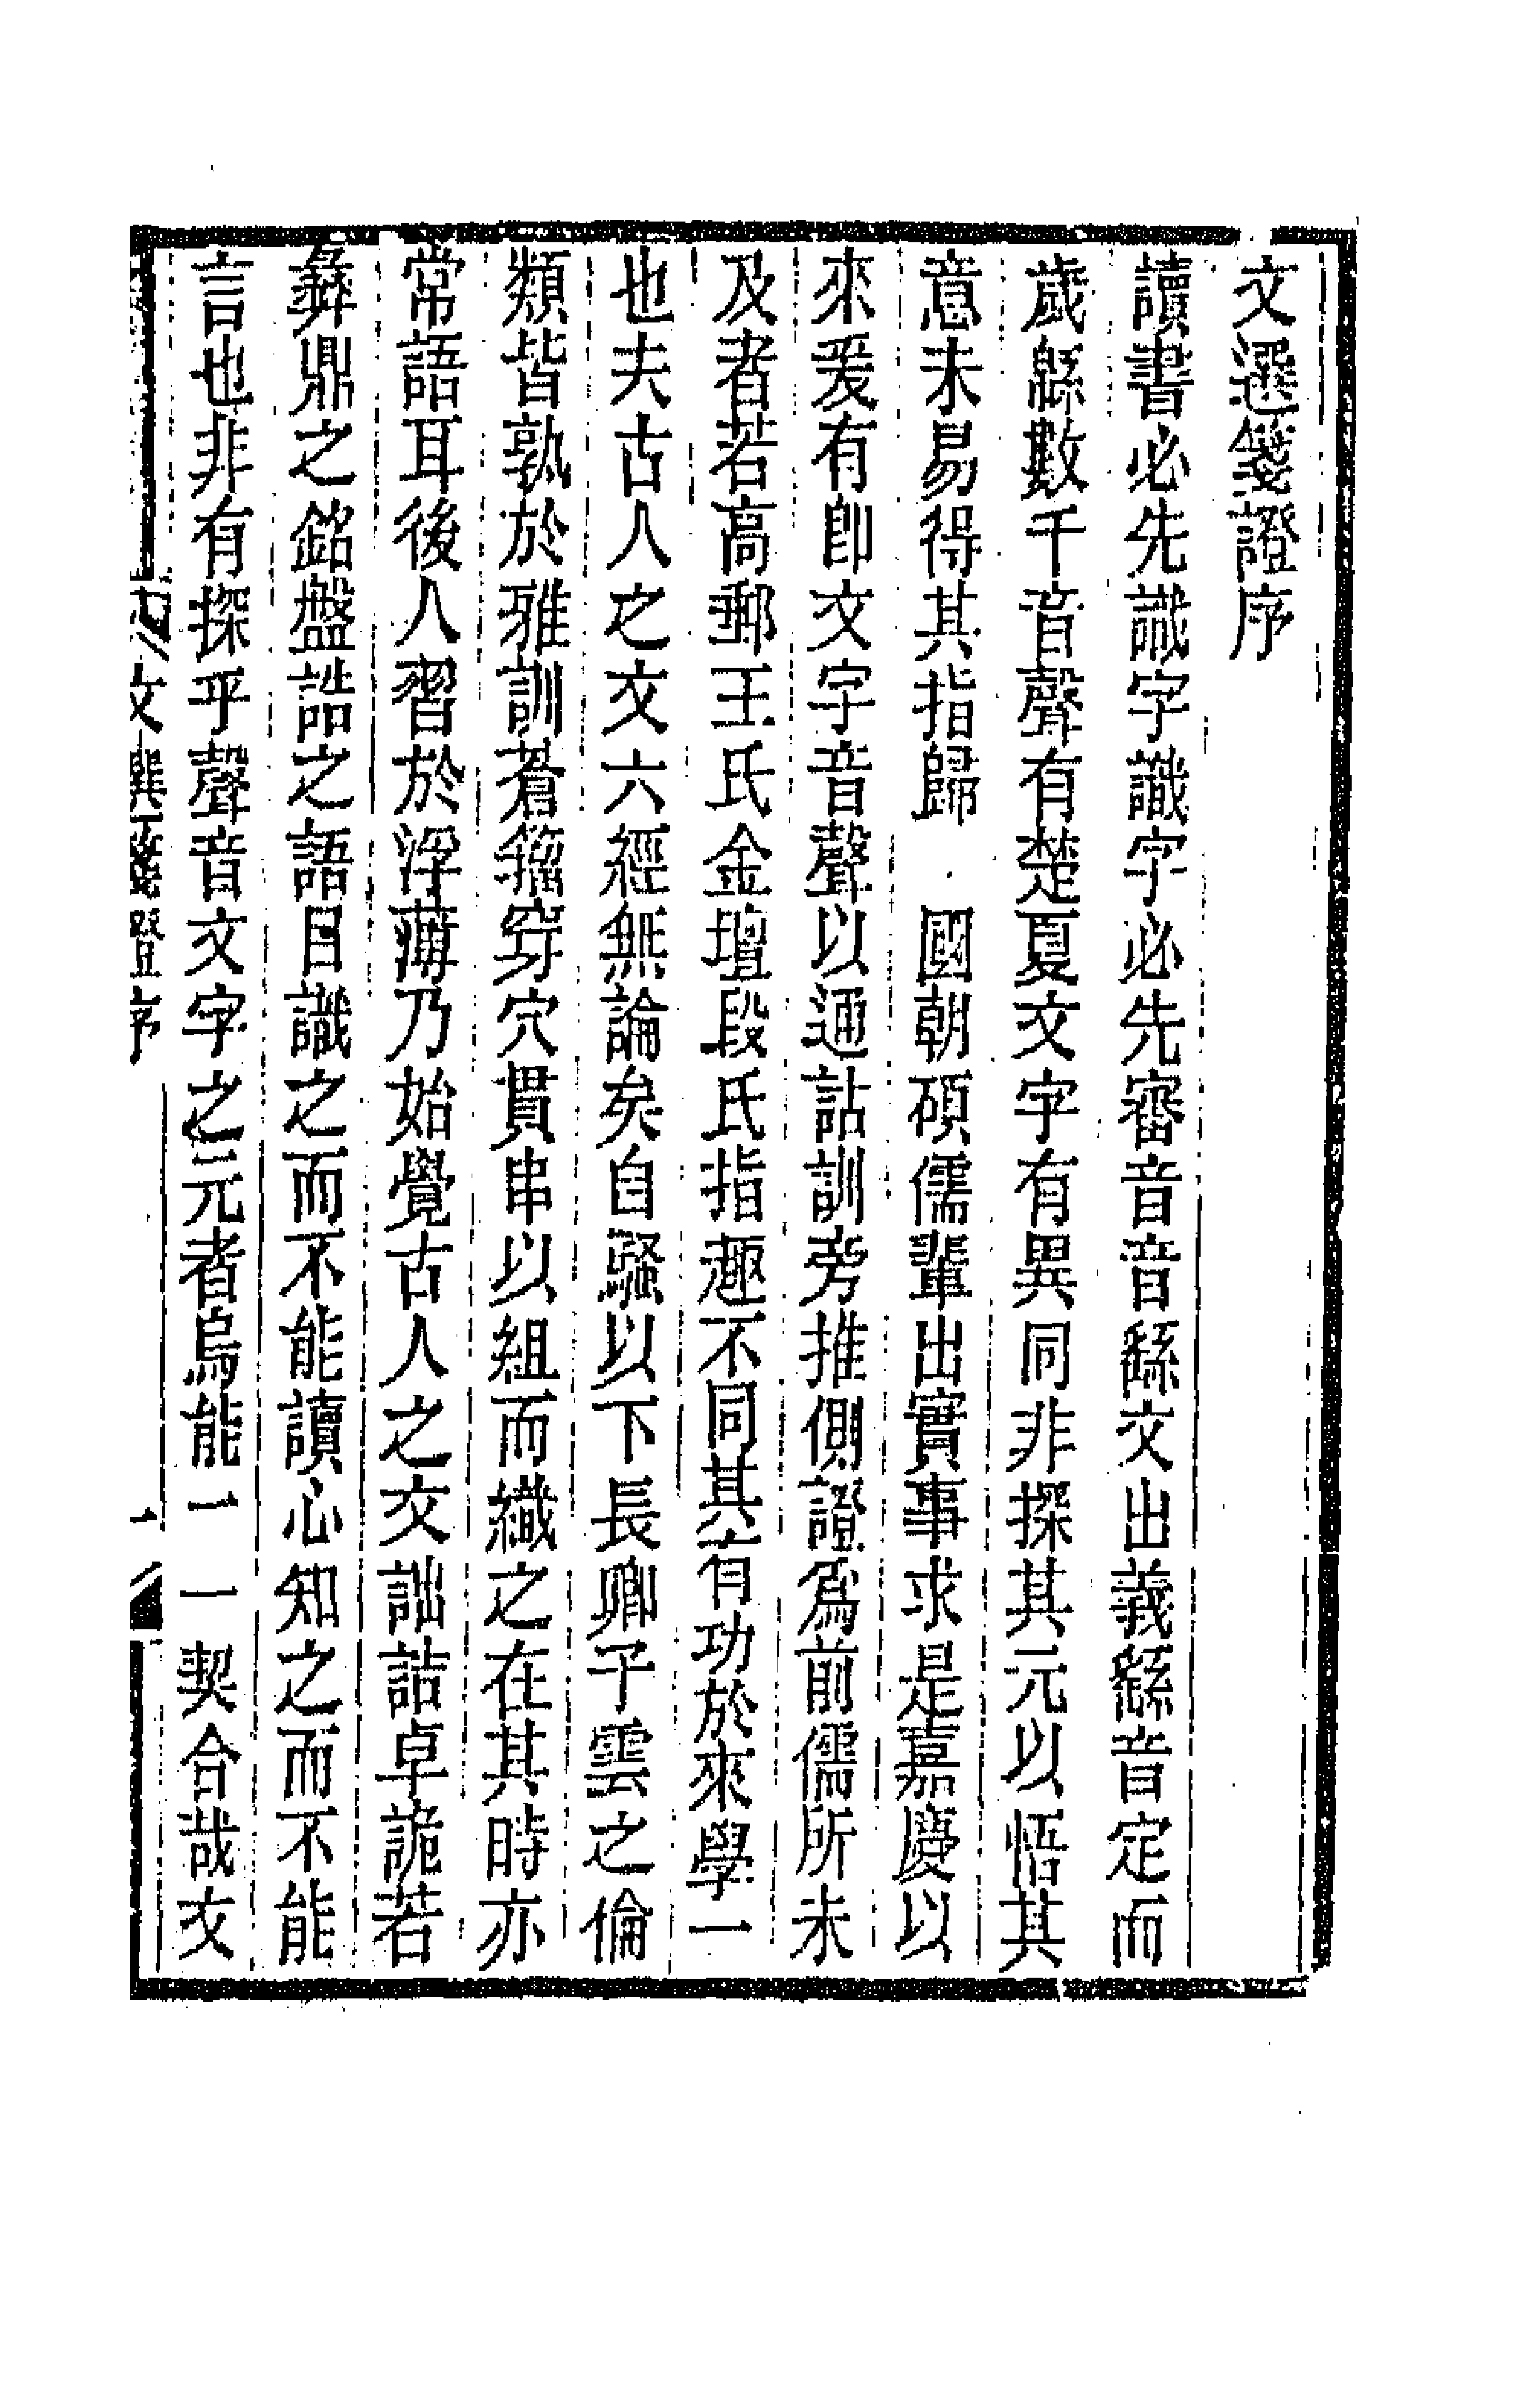 文選箋證序
讀書必先識字識字必先審音音繇文出義繇音定而
歲緜數千音聲有楚夏文字有異同非探其元以悟其
意未易得其指歸 國朝碩儒輩出實事求是嘉慶以
來爰有卽文字音聲以通詁訓旁推側證爲前儒所未
及者若高郵王氏金壇段氏指趣不同其有功於來學一
也夫古人之文六經無論矣自騷以下長卿子雲之倫
類皆孰於雅訓蒼籀穿穴貫串以組而織之在其時亦
常語耳後人習於浮薄乃始覺古人之文詘詰卓詭若
彝鼎之銘盤誥之語目識之而不能讀心知之而不能
言也非有探乎聲音文字之元者烏能一一契合哉文
文選箋證序 一